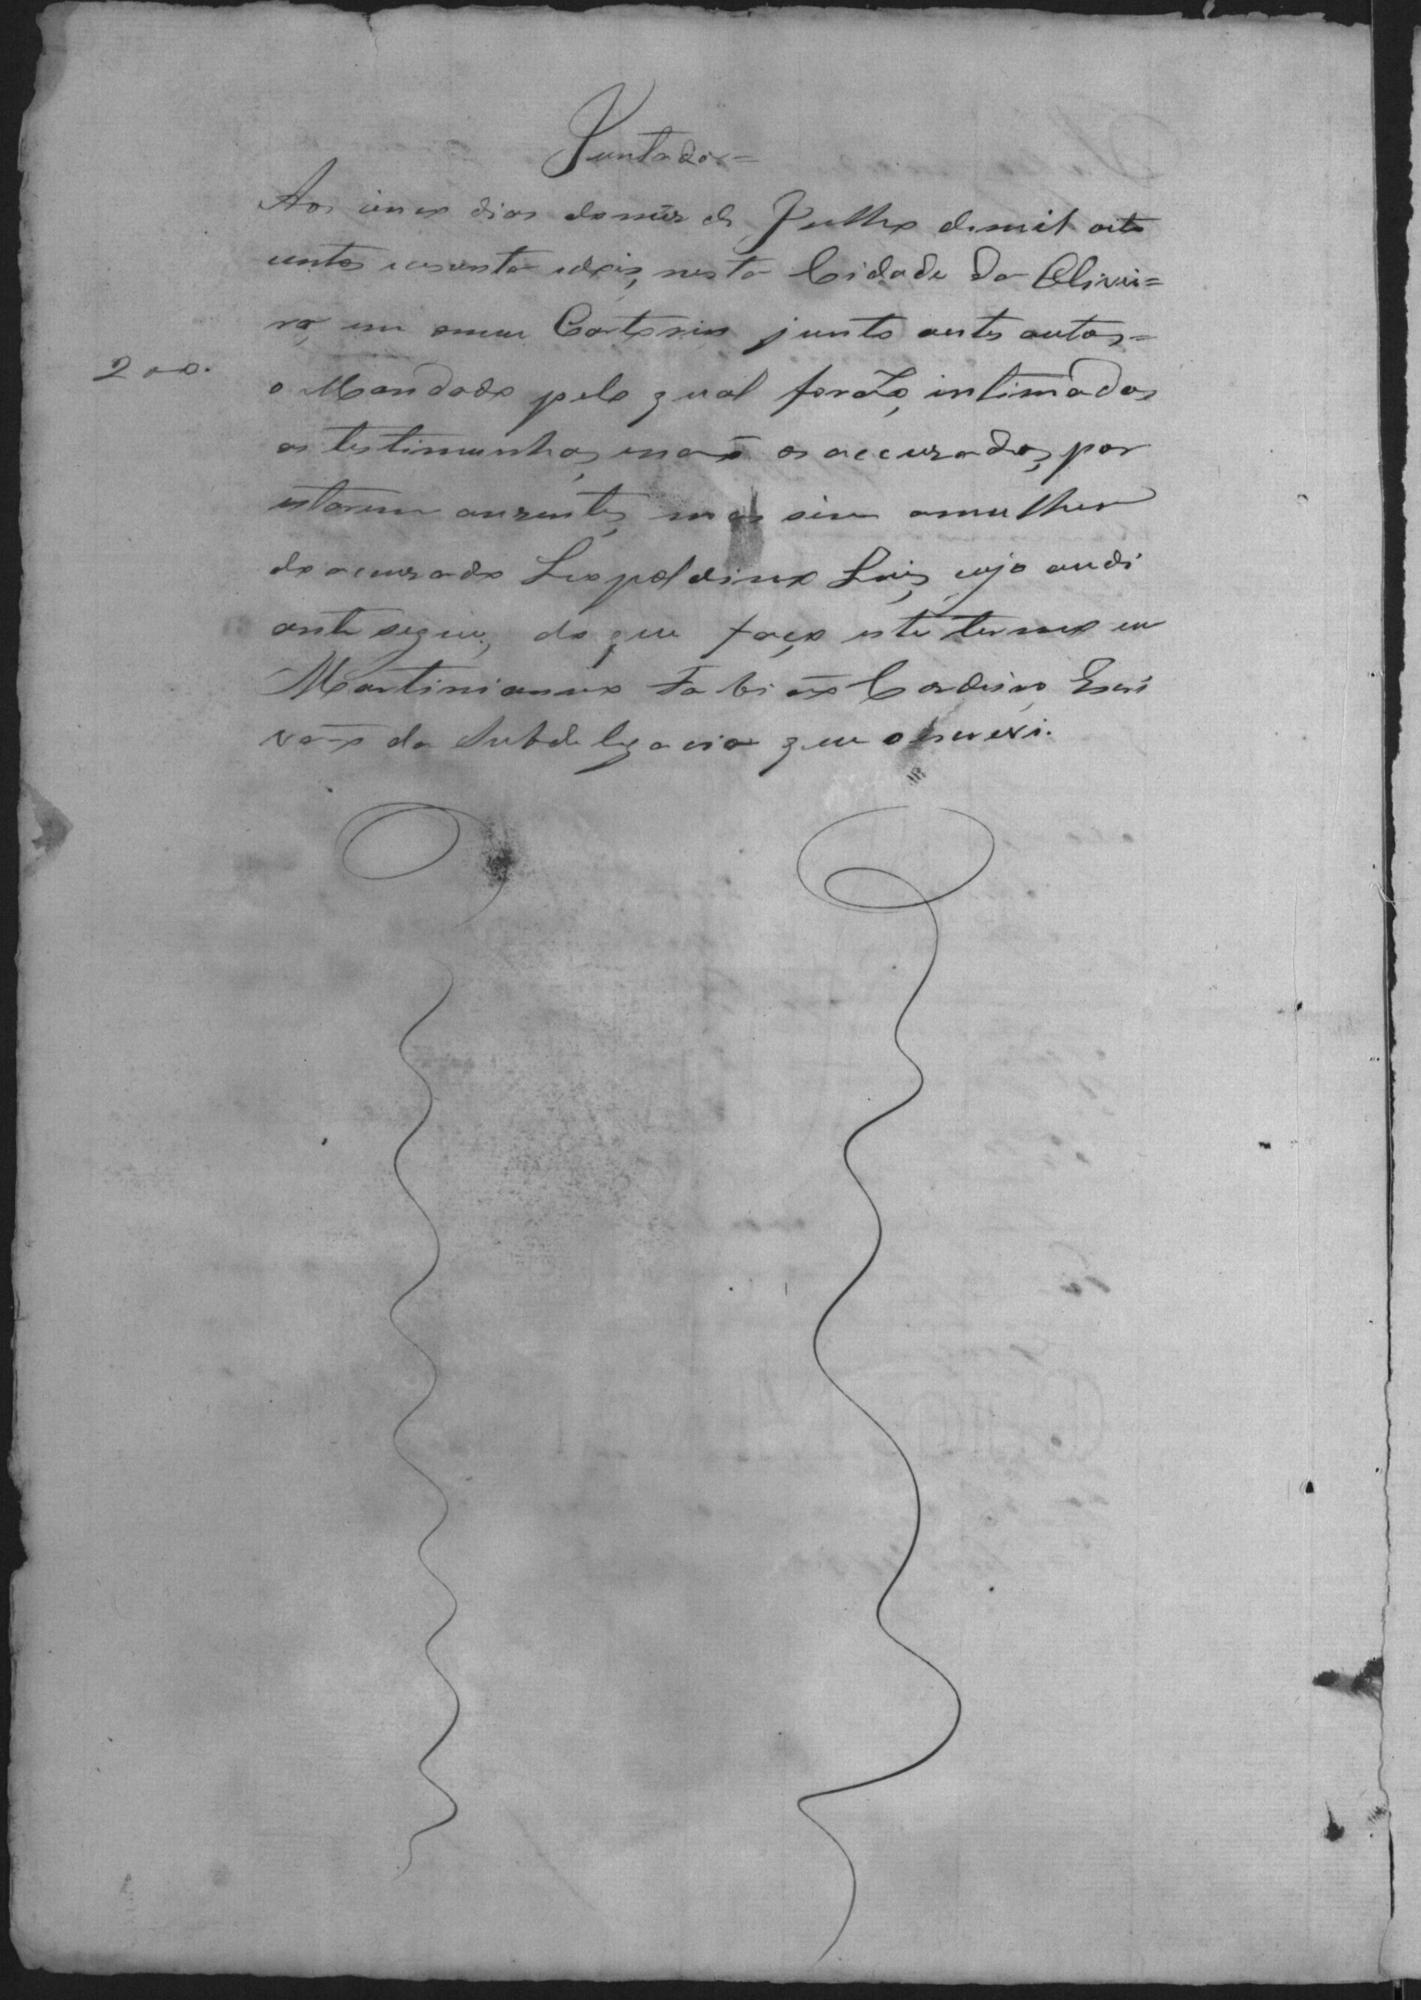 Juntada=
Aos cinco dias do mês de Julho de mil oito
centos e secenta e dois, nesta Cidade da Olivei=
ra, em o meu Cartorio junto a estes autos=
200.
o Mandado pelo qual forão intimados
as testimunhas, e não os accusados, por
estarem auzentes, mas sim a mulher
do acuzado Leopoldino Luis, cujo a o di
ante segue, do que faço este termo eu
Martiniano Fabião Cordeiro Escri
vão da Subdelegacia que o escrevi.